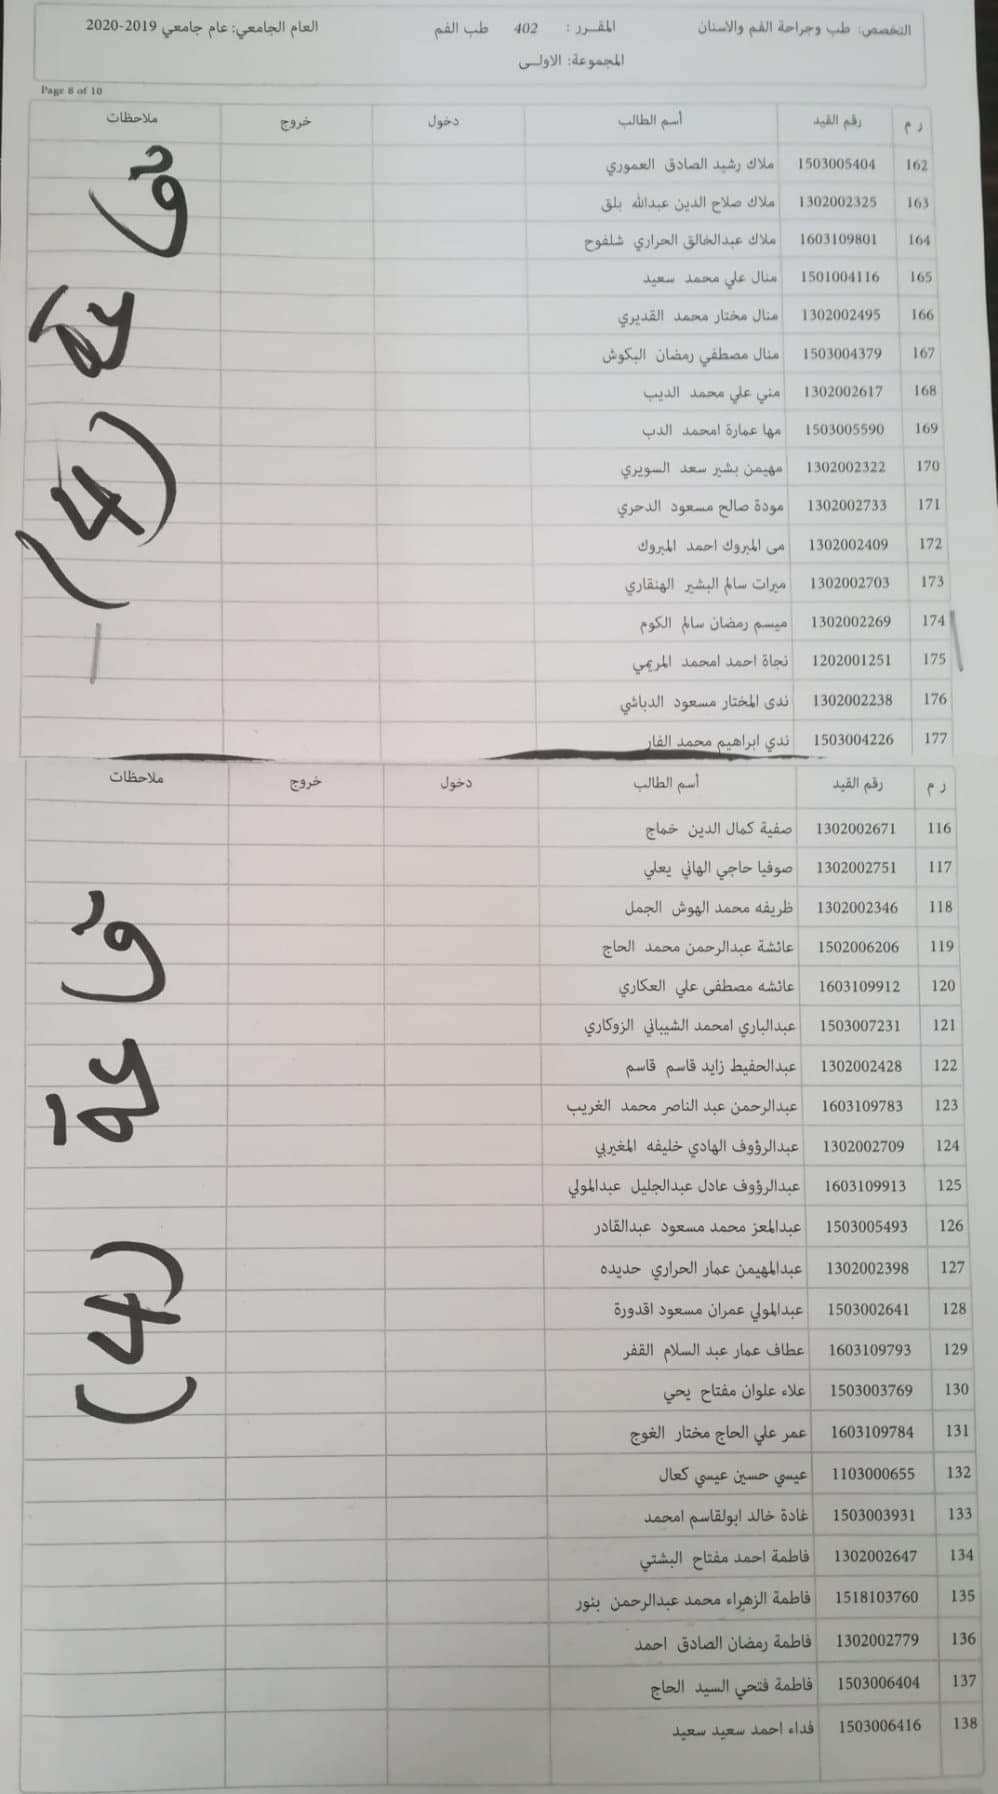 التخصص: طب وجراحة الفم والاسنان المقرر : 402 طب الفم العام الجامعي: عام جامعي 2019-2020
المجموعة: الاولى
Page 8 of 10
ر م رقم القيد أسم الطالب دخول خروج ملاحظات
162 1503005404 ملاك رشيد الصادق العموري
163 1302002325 ملاك صلاح الدين عبدالله بلق
164 1603109801 ملاك عبدالخالق الحراري شلفوح
165 1501004116 منال علي محمد سعيد
166 1302002495 منال مختار محمد القديري
167 1503004379 منال مصطفي رمضان البكوش
168 1302002617 مني علي محمد الديب
169 1503005590 مها عمارة امحمد الدب
170 1302002322 مهيمن بشير سعد السويري
171 1302002733 مودة صالح مسعود الدحري
172 1302002409 مى المبروك احمد المبروك
173 1302002703 ميرات سالم البشير الهنقاري
174 1302002269 ميسم رمضان سالم الكوم
175 1202001251 نجاة احمد امحمد المريمي
176 1302002238 ندى المختار مسعود الدباشي
177 1503004226 ندي ابراهيم محمد الفار
قاعة (4)
ر م رقم القيد أسم الطالب دخول خروج ملاحظات
116 1302002671 صفية كمال الدين خماج
117 1302002751 صوفيا حاجي الهاني يعلي
118 1302002346 ظريفه محمد الهوش الجمل
119 1502006206 عائشة عبدالرحمن محمد الحاج
120 1603109912 عائشه مصطفى علي العكاري
121 1503007231 عبدالباري امحمد الشيباني الزوكاري
122 1302002428 عبدالحفيظ زايد قاسم قاسم
123 1603109783 عبدالرحمن عبد الناصر محمد الغريب
124 1302002709 عبدالرؤوف الهادي خليفه المغيربي
125 1603109913 عبدالرؤوف عادل عبدالجليل عبدالمولي
126 1503005493 عبدالمعز محمد مسعود عبدالقادر
127 1302002398 عبدالمهيمن عمار الحراري حديده
128 1503002641 عبدالمولي عمران مسعود اقدورة
129 1603109793 عطاف عمار عبد السلام القفر
130 1503003769 علاء علوان مفتاح يحي
131 1603109784 عمر علي الحاج مختار الغوج
132 1103000655 عيسي حسين عيسي كعال
133 1503003931 غادة خالد ابولقاسم امحمد
134 1302002647 فاطمة احمد مفتاح البشتي
135 1518103760 فاطمة الزهراء محمد عبدالرحمن بنور
136 1302002779 فاطمة رمضان الصادق احمد
137 1503006404 فاطمة فتحي السيد الحاج
138 1503006416 فداء احمد سعيد سعيد
قاعة (4)